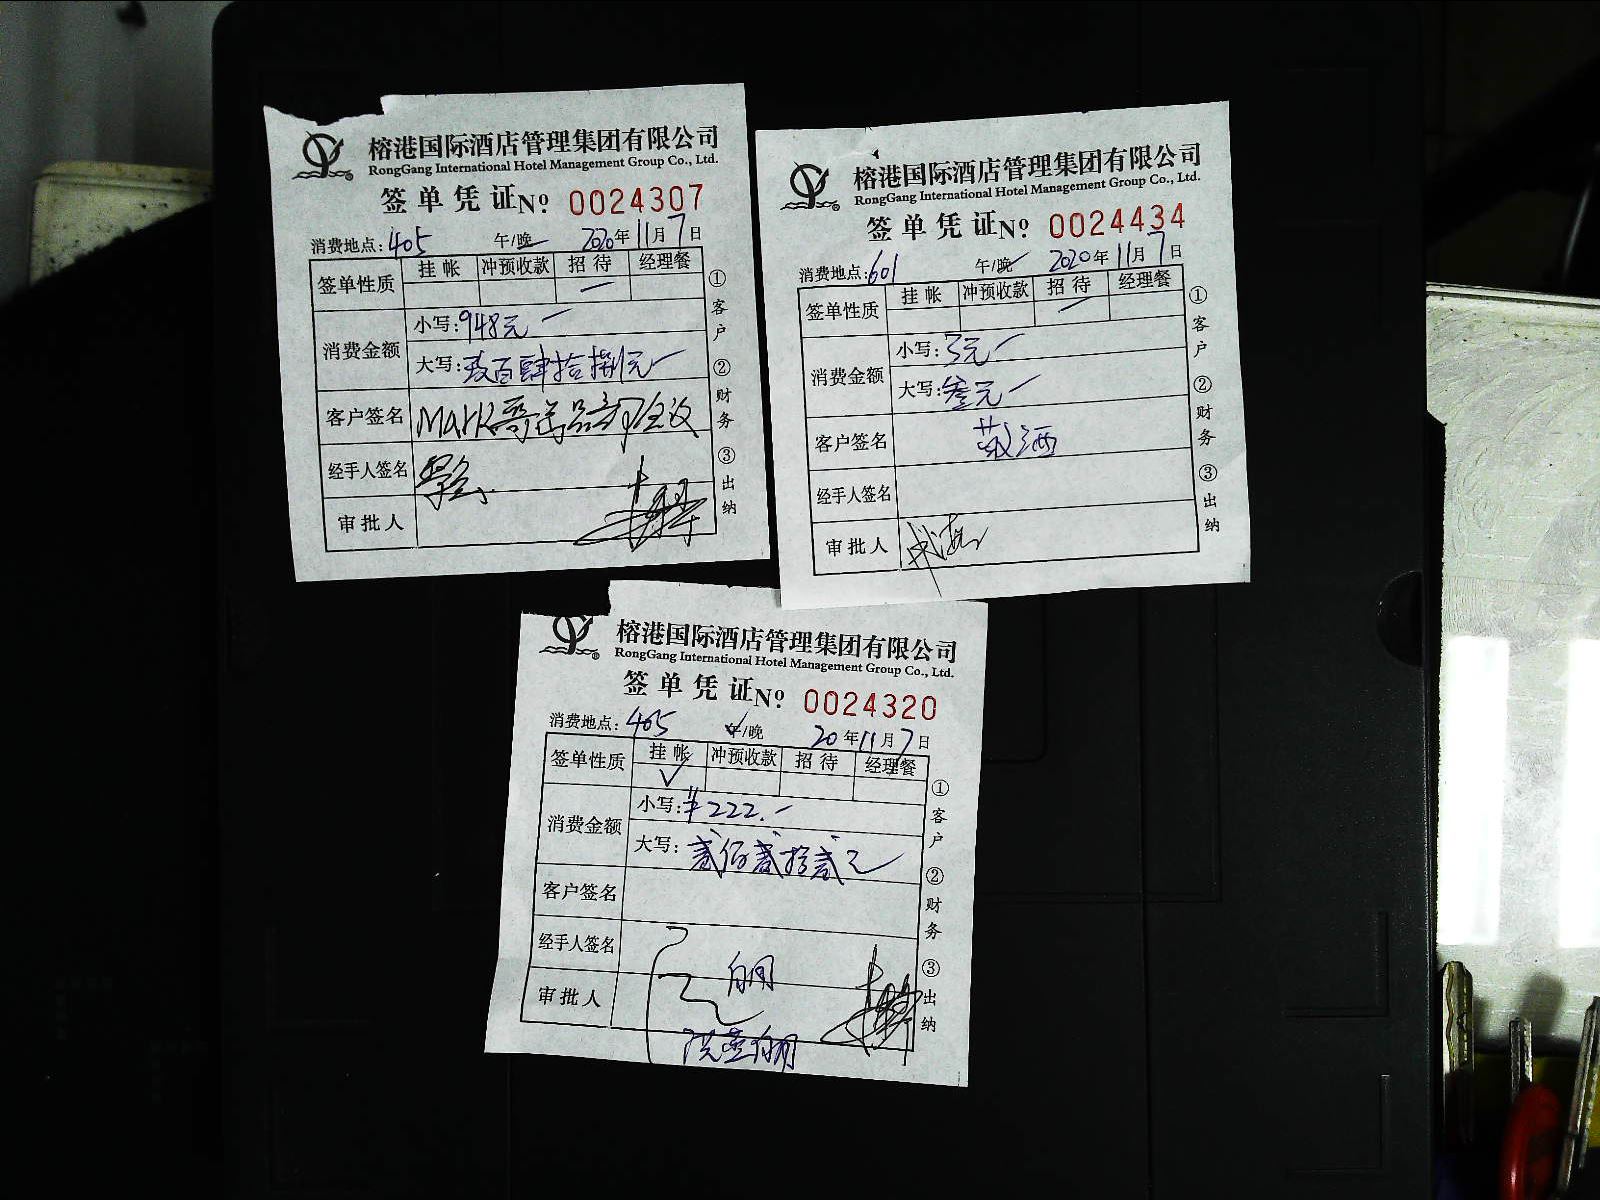 榕港国际酒店管理集团有限公司
RongGang International Hotel Management Group Co., Ltd.
签单凭证No 0024307
消费地点:405 午/晚 2020年11月7日
签单性质 挂帐 冲预收款 招待 经理餐
消费金额
小写:948元
大写:玖百肆拾捌元
客户签名 Mark哥
经手人签名
审批人
①客户 ②财务 ③出纳
榕港国际酒店管理集团有限公司
RongGang International Hotel Management Group Co., Ltd.
签单凭证No 0024434
消费地点:601 午/晚 2020年11月7日
签单性质 挂帐 冲预收款 招待 经理餐
消费金额
小写:3元
大写:叁元
客户签名 敬酒
经手人签名
审批人
①客户 ②财务 ③出纳
榕港国际酒店管理集团有限公司
RongGang International Hotel Management Group Co., Ltd.
签单凭证No 0024320
消费地点:405 午/晚 20年11月7日
签单性质 挂帐 冲预收款 招待 经理餐
✓
消费金额
小写:¥222.
大写:贰佰贰拾贰元
客户签名
经手人签名
审批人
①客户 ②财务 ③出纳